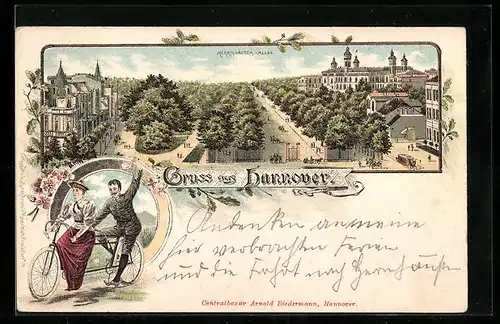 HERRENHÄUSER-ALLEE.
Gruss aus Hannover.
Andenken an meine
hier verbrachten Ferien
und die Fahrt nach Herrnhausen
Centralbazar Arnold Biedermann, Hannover.